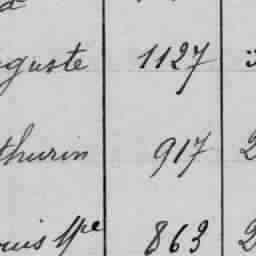 guste 1127
thurin 917 2
ouis Mpe 863 2